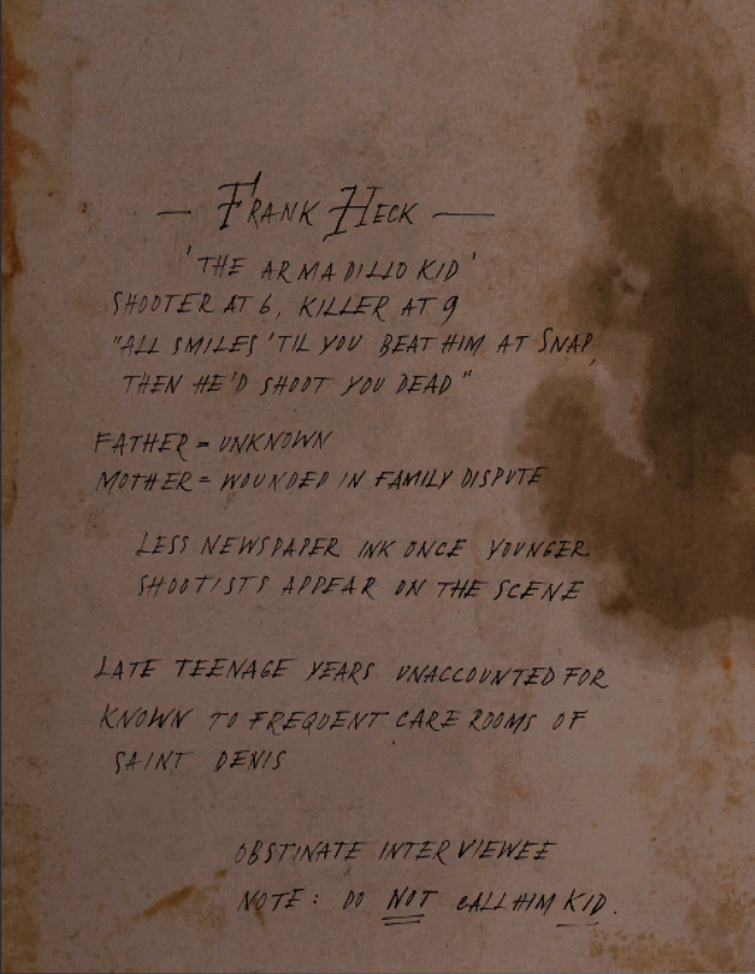 — FRANK HECK —
'THE ARMADILLO KID'
SHOOTER AT 6, KILLER AT 9
"ALL SMILES 'TIL YOU BEAT HIM AT SNAP,
THEN HE'D SHOOT YOU DEAD"
FATHER = UNKNOWN
MOTHER = WOUNDED IN FAMILY DISPUTE
LESS NEWSPAPER INK ONCE YOUNGER
SHOOTISTS APPEAR ON THE SCENE
LATE TEENAGE YEARS UNACCOUNTED FOR
KNOWN TO FREQUENT CARE ROOMS OF
SAINT DENIS
OBSTINATE INTERVIEWEE
NOTE: DO NOT CALL HIM KID.